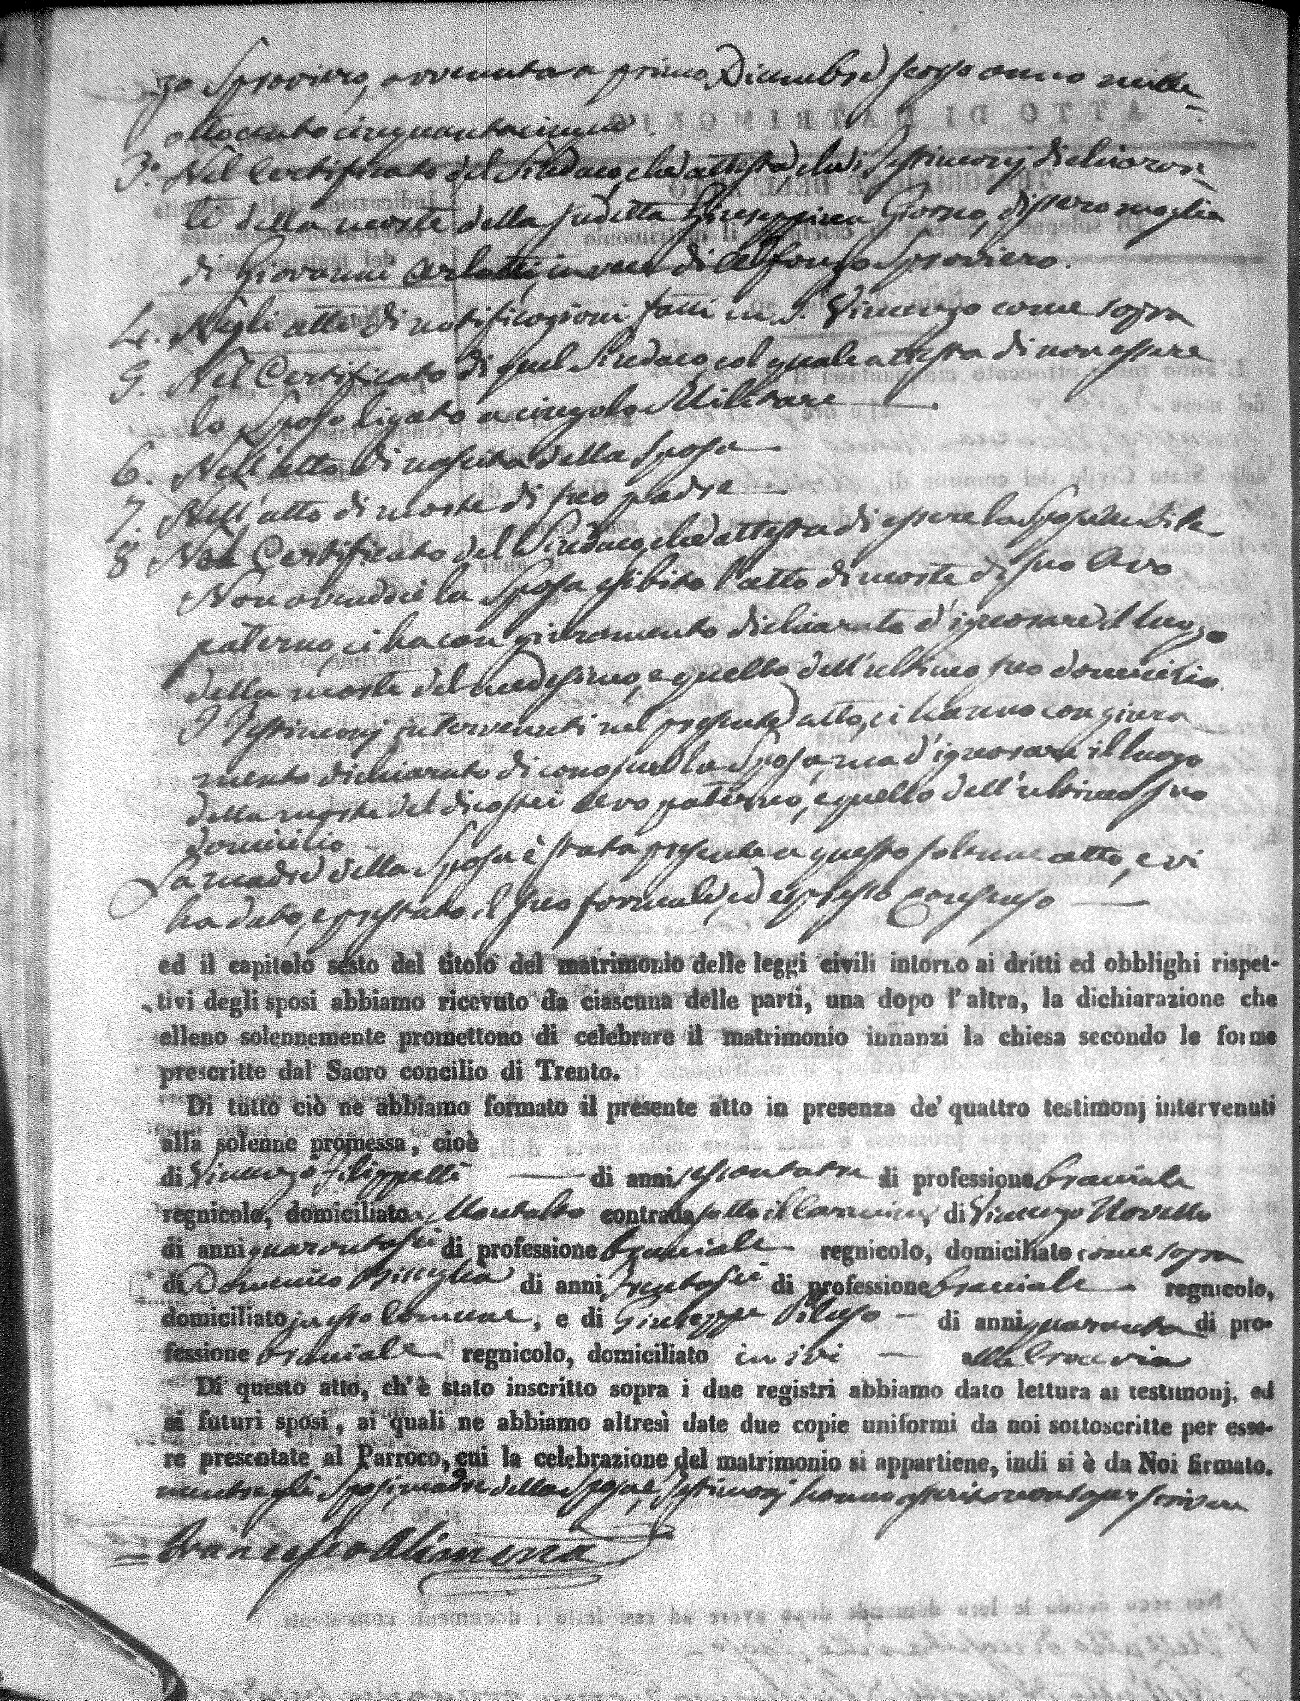 zo Sproviero, avvenuta a primo Dicembre scorso anno mille
ottocento cinquanta
3.° Nel Certificato del Sindaco, che attesta, che i Testimonj dichiaran-
ti della morte della sudetta Giuseppina Giorno, dissero moglie
di Giovanni invece di Alfonzo Sproviero.
4. Negli atti di notificazioni fatti in S. Vincenzo come sopra
5. Nel Certificato di quel Sindaco col quale attesta di non essere
lo Sposo ligato a cingolo Militare
6. Nell'atto di nascita della Sposa
7. Nell'atto di morte di suo padre
8 Nel Certificato del Sindaco, che attesta di essere la Sposa
Non avendoci la Sposa esibito l'atto di morte di suo Avo
paterno, ci ha con giuramento dichiarato d'ignorare il luogo
della morte del medesimo, e quello dell'ultimo suo domicilio.
I Testimonj intervenuti nel presente atto, ci hanno con giura
mento dichiarato di conoscere la Sposa, ma d'ignorare il luogo
della morte del di costei Avo paterno, e quello dell'ultimo suo
domicilio
La madre della Sposa è stata presente a questo solenne atto, e vi
ha dato, e prestato il suo formale, ed espresso Consenso
ed il capitolo sesto del titolo del matrimonio delle leggi civili intorno ai dritti ed obblighi rispet-
tivi degli sposi abbiamo ricevuto da ciascuna delle parti, una dopo l'altra, la dichiarazione che
elleno solennemente promettono di celebrare il matrimonio innanzi la chiesa secondo le forme
prescritte dal Sacro concilio di Trento.
Di tutto ciò ne abbiamo formato il presente atto in presenza de' quattro testimonj intervenuti
alla solenne promessa, cioè
di Vincenzo Filippelli di anni sessantatre di professione bracciale
regnicolo, domiciliato Montalto contrada sotto il Carmine, di Vincenzo Novello
di anni quarantasei di professione bracciale regnicolo, domiciliato come sopra
di Domenico Bisciglia di anni trentasei di professione bracciale regnicolo,
domiciliato in esso Comune, e di Giuseppe Piluso di anni quaranta di pro-
fessione bracciale regnicolo, domiciliato in ivi alla
Di questo atto, ch'è stato inscritto sopra i due registri abbiamo dato lettura ai testimonj, ed
ai futuri sposi, ai quali ne abbiamo altresì date due copie uniformi da noi sottoscritte per esse-
re presentate al Parroco, cui la celebrazione del matrimonio si appartiene, indi si è da Noi firmato.
mentre gli Sposi, madre della Sposa, e Testimonj hanno asserito non saper scrivere
Francesco Alimena